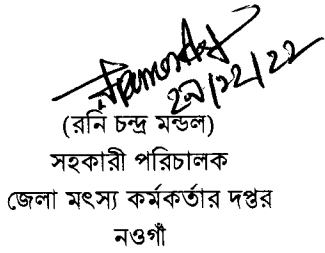 ২৯/১২/২২
(রনি চন্দ্র মন্ডল)
সহকারী পরিচালক
জেলা মৎস্য কর্মকর্তার দপ্তর
নওগাঁ